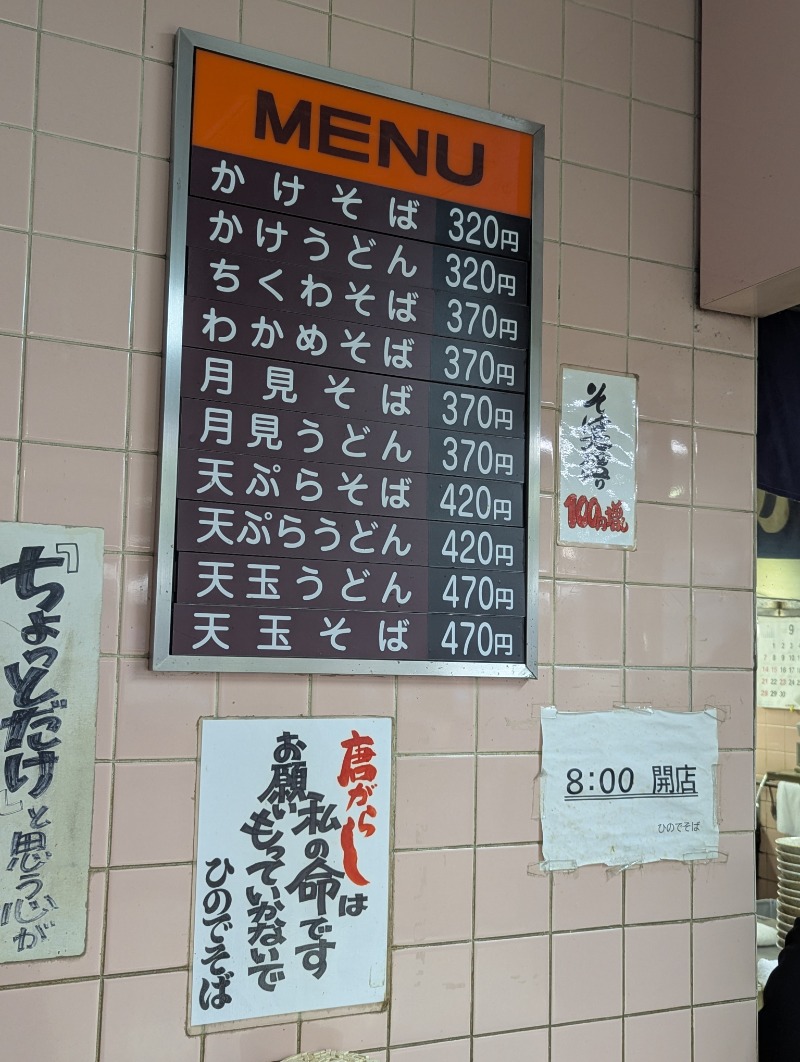 MENU
かけそば 320円
かけうどん 320円
ちくわそば 370円
わかめそば 370円
月見そば 370円
月見うどん 370円
天ぷらそば 420円
天ぷらうどん 420円
天玉うどん 470円
天玉そば 470円
100円増
『ちょっとだけ』と思う心が
唐がらしは
私の命です
お願いもっていかないで
ひのでそば
8:00 開店
ひのでそば
9